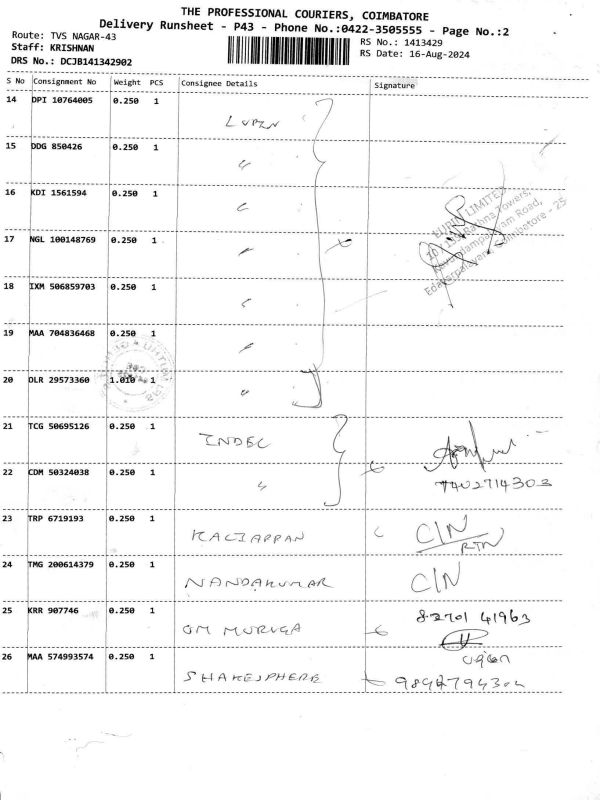 THE PROFESSIONAL COURIERS, COIMBATORE
Delivery Runsheet - P43 - Phone No.:0422-3505555 - Page No.:2
Route: TVS NAGAR-43
RS No.: 1413429
Staff: KRISHNAN
RS Date: 16-Aug-2024
DRS No.: DCJB141342902
S No Consignment No Weight PCS Consignee Details Signature
14 DPI 10764005 0.250 1
LUPIN
15 DDG 850426 0.250 1
〃
16 KDI 1561594 0.250 1
LUPIN LIMITED
17 NGL 100148769 0.250 1
18 IXM 506859703 0.250 1
19 MAA 704836468 0.250 1
20 DLR 29573360 1.010 1
21 TCG 50695126 0.250 1
INDEC
22 CDM 50324038 0.250 1
〃 7402714303
23 TRP 6719193 0.250 1
KALIAPPAN C/N
RTN
24 TMG 200614379 0.250 1
NANDAKUMAR C/N
25 KRR 907746 0.250 1
OM MURUGA 82701 41963
26 MAA 574993574 0.250 1
SHAKESPHERE